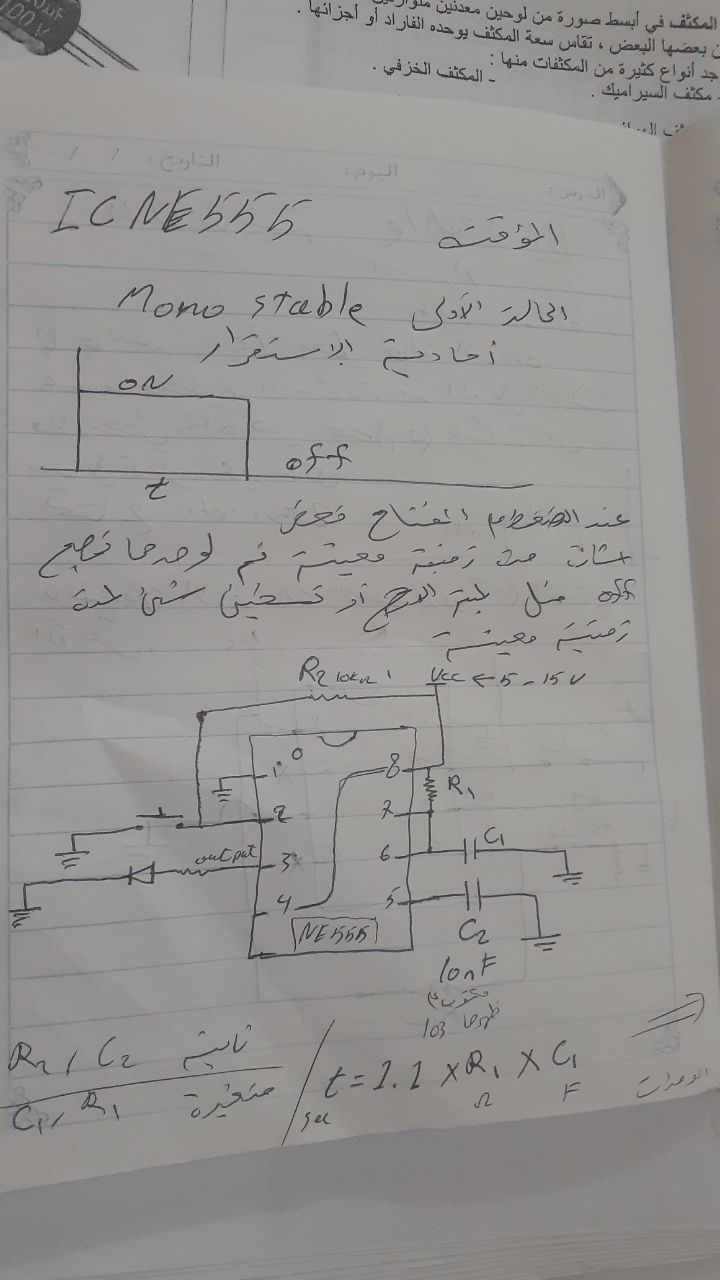 00V
المكثف في أبسط صورة من لوحين معدنين
بعضها البعض ، تقاس سعة المكثف بوحده الفاراد أو أجزائها .
جد أنواع كثيرة من المكثفات منها :
- مكثف السيراميك . - المكثف الخزفي .
الدرس: اليوم: التاريخ: / /
IC NE555 المؤقت
الحالة الأولى Mono stable
أحادية الاستقرار
ON
off
t
عند الضغط المفتاح
زمنية معينة ثم لوحدها
off مثل أو شئ لمدة
زمنية معينة
R2 10kΩ Vcc ← 5 - 15V
1 8
R1
2 7
3 output 6 C1
4 5
NE555 C2
10nF
مكتوب
ظهرها 103
R2 , C2 ثابتة
C1 , R1 متغيرة
t = 1.1 × R1 × C1
sec Ω F الوحدات